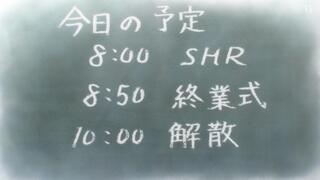 今日の予定
8:00 SHR
8:50 終業式
10:00 解散